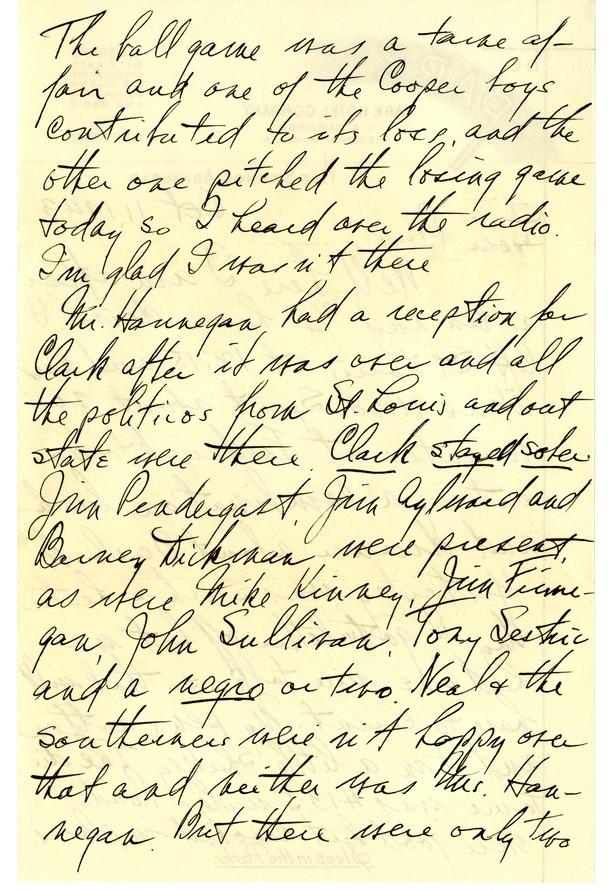 The ball game was a tame af-
fair and one of the Cooper boys
contributed to its loss, and the
other one pitched the losing game
today so I heard over the radio.
I'm glad I was n't there
Mr. Hannegan had a reception for
Clark after it was over and all
the politicos from St. Louis and out
state were there. Clark stayed sober.
Jim Pendergast, Jim Aylward and
Barney Dickman were present,
as were Mike Kinney, Jim Finne-
gan, John Sullivan, Tony Sestric
and a negro or two. Neal & the
southerners were n't happy over
that and neither was Mrs. Han-
negan. But there were only two